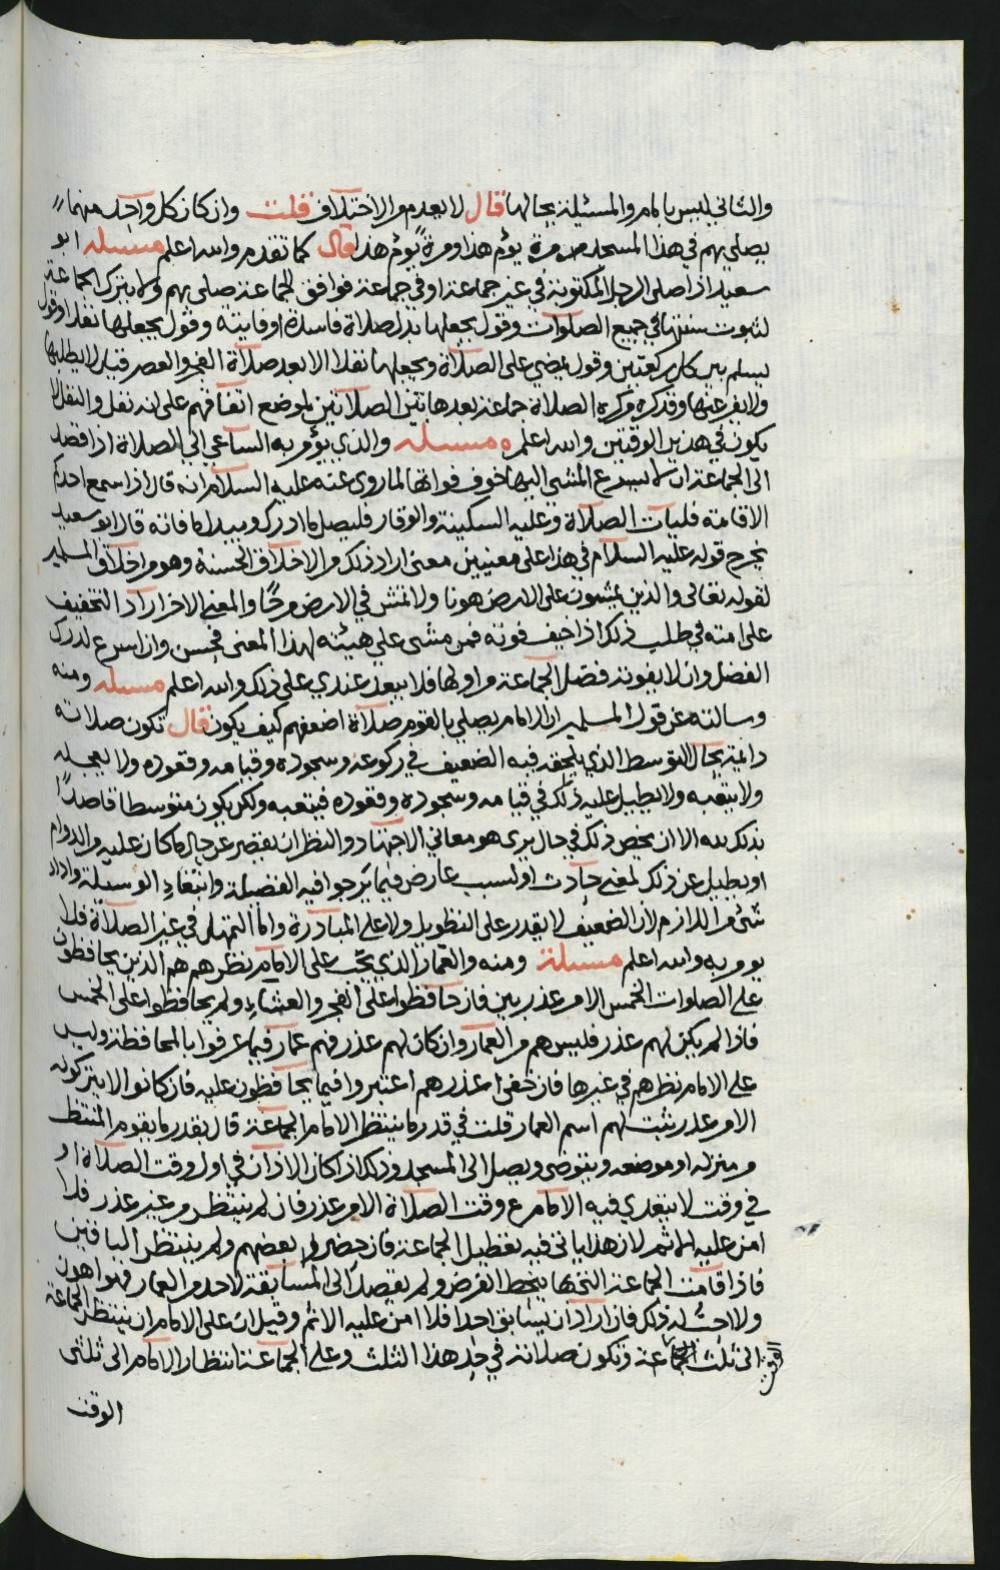 والثاني ليس بامام والمسئلة بحالها قال لا يعدم من الاختلاف قلت وان كان كل واحد منهما
يصلي بهم في هذا المسجد مرة يؤم هذا ومرة يؤم هذا قال كما تقدم والله اعلم مسئله ابو
سعيد اذا صلى الرجل المكتوبة في غير جماعة او في جماعة فوافق الجماعة صلى بهم ولا يترك الجماعة
لثبوت سنتها في جميع الصلوات وقول يجعلها بدل صلاة فاسدة او فايتة وقول يجعلها نفلا وقول
يسلم بين كل ركعتين وقول يمضي على الصلاة ويجعلها نفلا الا بعد صلاة الفجر والعصر قيل لا يصليها
ولا يفر عنها وقد كره من كره الصلاة جماعة بعد هاتين الصلاتين لموضع اتفاقهم على انه نفل والنفل لا
يكون في هذين الوقتين والله اعلم ه مسئله والذي يؤمر به الساعي الى الصلاة اذا قصد
الى الجماعة ان لا يسرع المشي اليها خوف فواتها لما روي عنه عليه السلام انه قال اذا سمع احدكم
الاقامة فليات الصلاة وعليه السكينة والوقار فليصل ما ادرك ويبدل ما فاته قال ابو سعيد
يخرج قوله عليه السلام في هذا على معنيين معنى اراد ذلك من الاخلاق الحسنة وهو من اخلاق المسلمين
لقوله تعالى والذين يمشون على الارض هونا ولا تمش في الارض مرحا والمعنى الاخر اراد التخفيف
على امته في طلب ذلك اذا خيف فوته فمن مشى على هيئته لهذا المعنى فحسن وان اسرع لدرك
الفضل وان لا يفوته فضل الجماعة من اولها فلا يبعد عندي على ذلك والله اعلم مسئله ومنه
وسالته عن قول المسلمين ان الامام يصلي بالقوم صلاة اضعفهم كيف يكون قال تكون صلاته
دائمة بحال التوسط الذي يلحقه فيه الضعيف في ركوعه وسجوده وقيامه وقعوده ولا يعجله
ولا يتعبه ولا يطيل عليه ذلك في قيامه وسجوده وقعوده فيتعبه ولكن يكون متوسطا قاصدا
بذلك بدنه الا ان يخص ذلك في حال يرى هو معاني الاجتهاد والنظر ان يقصر عن حال ما كان عليه من الدوام
او يطيل عن ذلك لمعنى حادث او لسبب عارض فيما يرجوا فيه الفضيلة وابتغاء الوسيلة واداء
شيء من اللازم لان الضعيف لا يقدر على التطويل ولا على المبادرة واما التمهل في غير الصلاة فلا
يومر به والله اعلم مسئلة ومنه والعمار الذي يجب على الامام نظرهم هم الذين يحافظون
على الصلوات الخمس الا من عذر بين فان حافظوا على الفجر والعشاء ولم يحافظوا على الخمس
فاذا لم يكن لهم عذر فليس هم من العمار وان كان لهم عذر فهم عمار فيما عرفوا بالمحافظة وليس
على الامام نظرهم في غيرها فان خفي عذرهم اعتبروا فيما يحافظون عليه فان كانوا لا يتركونه
الا من عذر ثبت لهم اسم العمار قلت في قدر ما ينتظر الامام الجماعة قال بقدر ما يقوم المنتظر
من منزله او موضعه ويتوضى ويصل الى المسجد وذلك اذا كان الاذان في اول وقت الصلاة او
في وقت لا يتعدي فيه الامام وقت الصلاة الا من عذر فان لم ينتظر من غير عذر فلا
امن عليه الماثم لان هذا ياتي فيه تعطيل الجماعة فان حضر بعضهم ولم ينتظر الباقين
فاذا قامت الجماعة التي بها ينحط الفرض ولم يقصد الى المسابقة لاحد من العمار فهو اهون
ولا احب له ذلك فان اراد ان يسابق احدا فلا امن عليه الاثم وقيل ان على الامام ان ينتظر الجماعة
الى ثلث الجماعة وتكون صلاته في حد هذا الثلث وعلى الجماعة انتظار الامام الى ثلثي
الوقت
الوقت